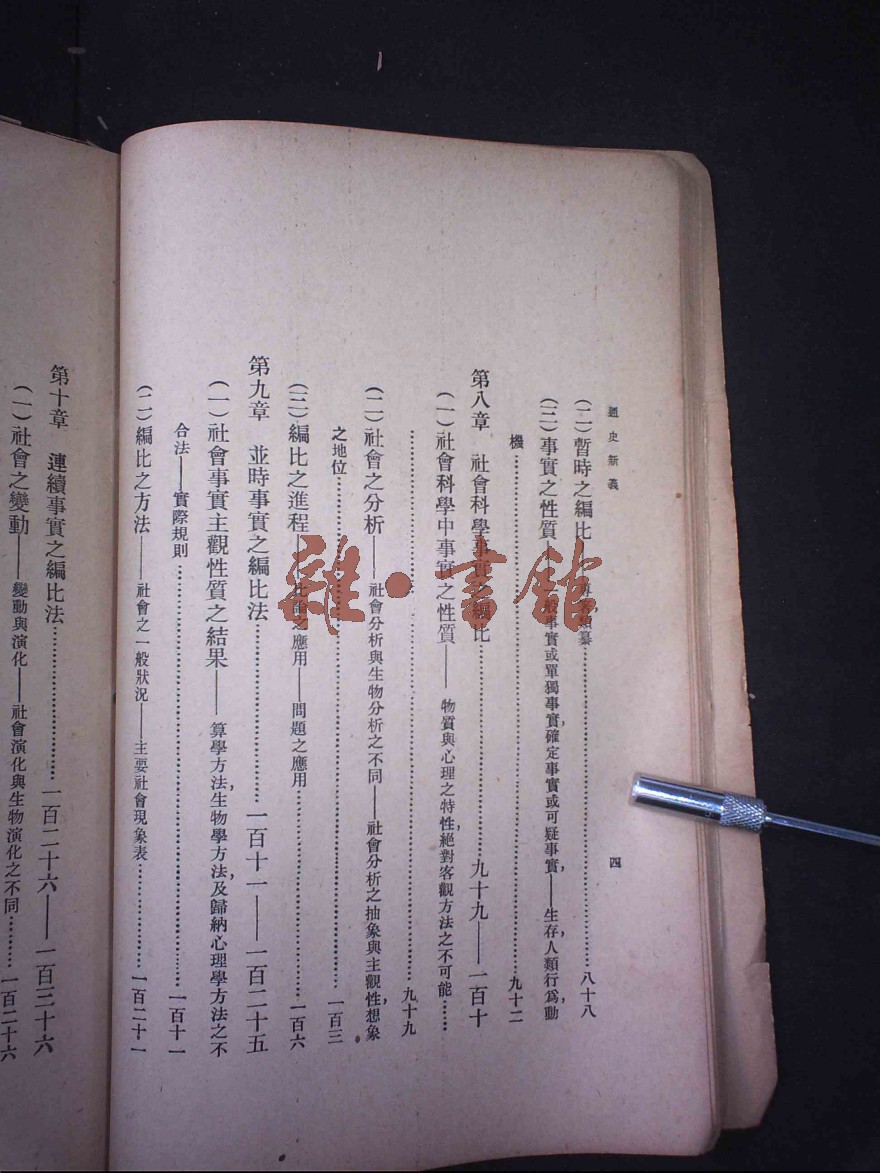 通史新義
四
(二)暫時之編比——專名類纂……八十八
(三)事實之性質——一般事實或單獨事實,確定事實或可疑事實,——生存,人類行為,動
機……九十二
第八章 社會科學事實之編比……九十九——一百十
(一)社會科學中事實之性質——物質與心理之特性,絕對客觀方法之不可能……
……九十九
(二)社會之分析——社會分析與生物分析之不同——社會分析之抽象與主觀性,想象
之地位……一百三
(三)編比之進程——比論之應用——問題之應用……一百六
第九章 並時事實之編比法……一百十一——一百二十五
(一)社會事實主觀性質之結果——算學方法,生物學方法,及歸納心理學方法之不
合法——實際規則……一百十一
(二)編比之方法——社會之一般狀況——主要社會現象表……一百二十一
第十章 連續事實之編比法……一百二十六——一百三十六
(一)社會之變動——變動與演化——社會演化與生物演化之不同……一百二十六
雜·書館